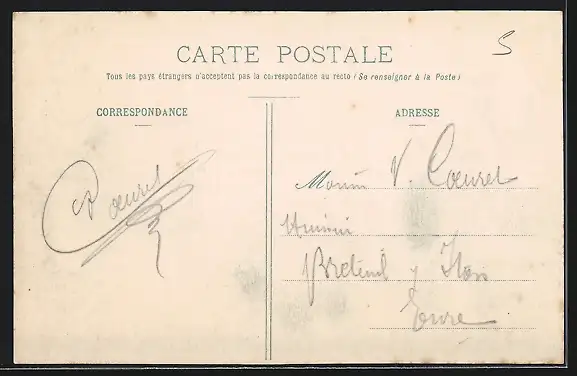 CARTE POSTALE
Tous les pays étrangers n'acceptent pas la correspondance au recto (Se renseigner à la Poste)
CORRESPONDANCE
ADRESSE
S
V. Coeuret
Breteuil s/ Iton
Eure
Coeuret